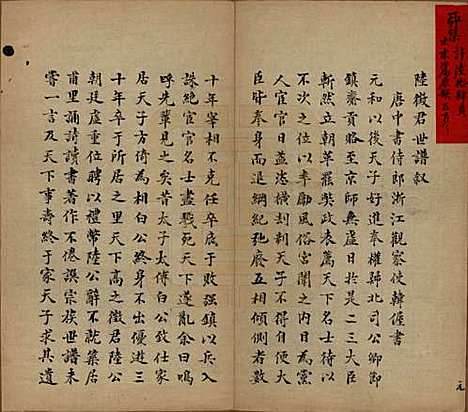 陸徵君世譜叙
唐中書侍郎浙江觀察使韓偓書
元和以後天子好進奉權歸北司公卿節
鎮齋貢絡至京師無虛日於是二三大臣
斬然立朝革罷獎政表厲天下名士待以
不次之位以率廊風俗宮闈之內日為黨
人宦官日益恣橫刦制天子不自便大
臣皆奉身而退綱紀弛廢互相傾側者數
十年宰相不克任卒底于敗強鎮以兵入
誅絕宦官名士盡戮死天下遂亂余曰嗚
呼先輩見之矣昔太子太傅白公致仕家
居天子方倚為相白公終身不出優遊三
十年卒于所居之里天下高之徵君陸公
朝廷虛重位聘以禮幣陸公辭不就築居
甫里誦詩讀書著作不倦譔宗族世譜未
嘗一言及天下事壽終于家天子求其遺
元